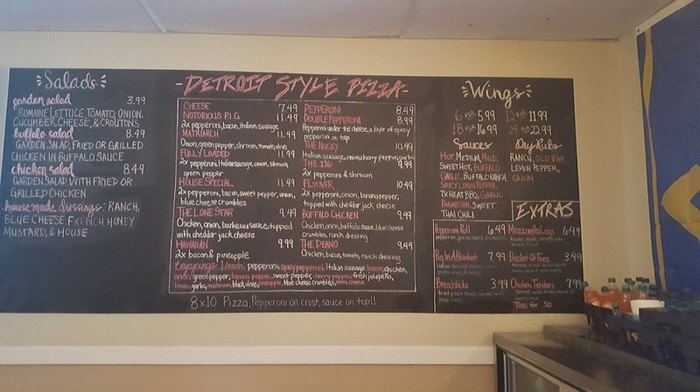 Salads
garden salad 3.99
ROMAINE LETTUCE, TOMATO, ONION,
CUCUMBER, CHEESE, & CROUTONS
buffalo salad 8.49
GARDEN SALAD, FRIED OR GRILLED
CHICKEN IN BUFFALO SAUCE
chicken salad 8.49
GARDEN SALAD WITH FRIED OR
GRILLED CHICKEN
house made dressings: RANCH,
BLUE CHEESE, FRENCH, HONEY
MUSTARD, & HOUSE
-DETROIT STYLE PIZZA-
CHEESE 7.49
NOTORIOUS P.I.G. 11.49
2x pepperoni, bacon, Italian sausage
MATRIARCH 11.49
Onion, green pepper, shroom, tomato, olive
FULLY LOADED 11.49
2x pepperoni, Italian sausage, onion, shroom,
green pepper
HOUSE SPECIAL 11.49
2x pepperoni, bacon, sweet pepper, onion,
blue cheese crumbles
THE LONE STAR 9.99
Chicken, onion, barbecue sauce, topped
with cheddar jack cheese
HAWAIIAN 9.99
2x bacon & pineapple
PEPPERONI 8.49
DOUBLE PEPPERONI 8.99
Pepperoni under the cheese, a layer of spicy
pepperoni on top
THE NUCKY 10.49
Italian sausage, onion, cherry peppers, garlic
THE 716 9.99
2x pepperoni & shroom
FLYOVER 10.49
2x pepperoni, onion, banana pepper,
topped with cheddar jack cheese
BUFFALO CHICKEN 9.99
Chicken, onion, buffalo sauce, blue cheese
crumbles, ranch dressing
THE DEANO 9.49
Chicken, bacon, tomato, ranch dressing
Toppings: pepperoni, spicy pepperoni, Italian sausage, bacon, chicken,
onion, green pepper, banana pepper, sweet pepper, cherry pepper, fresh jalapeño,
tomato, garlic, mushroom, black olive, pineapple, blue cheese crumbles, extra cheese
8x10 Pizza, Pepperoni on crust, sauce on top!!
Wings
6 5.99 12 11.99
18 16.99 24 22.99
Sauces
HOT, MEDIUM, MILD,
SWEET HOT, BUFFALO
GARLIC, BUFFALO
SPICY LEMON PEPPER,
TX HEAT BBQ, GARLIC
PARMESAN, SWEET
THAI CHILI
Dry Rubs
RANCH, OLD BAY,
LEMON PEPPER,
CAJUN
EXTRAS
Pepperoni Roll 6.49
Pig In A Blanket 7.99
Breadsticks 3.99
Mozzarella Logs 6.49
Basket Of Fries 3.49
Chicken Tenders 7.99
Toss for .50